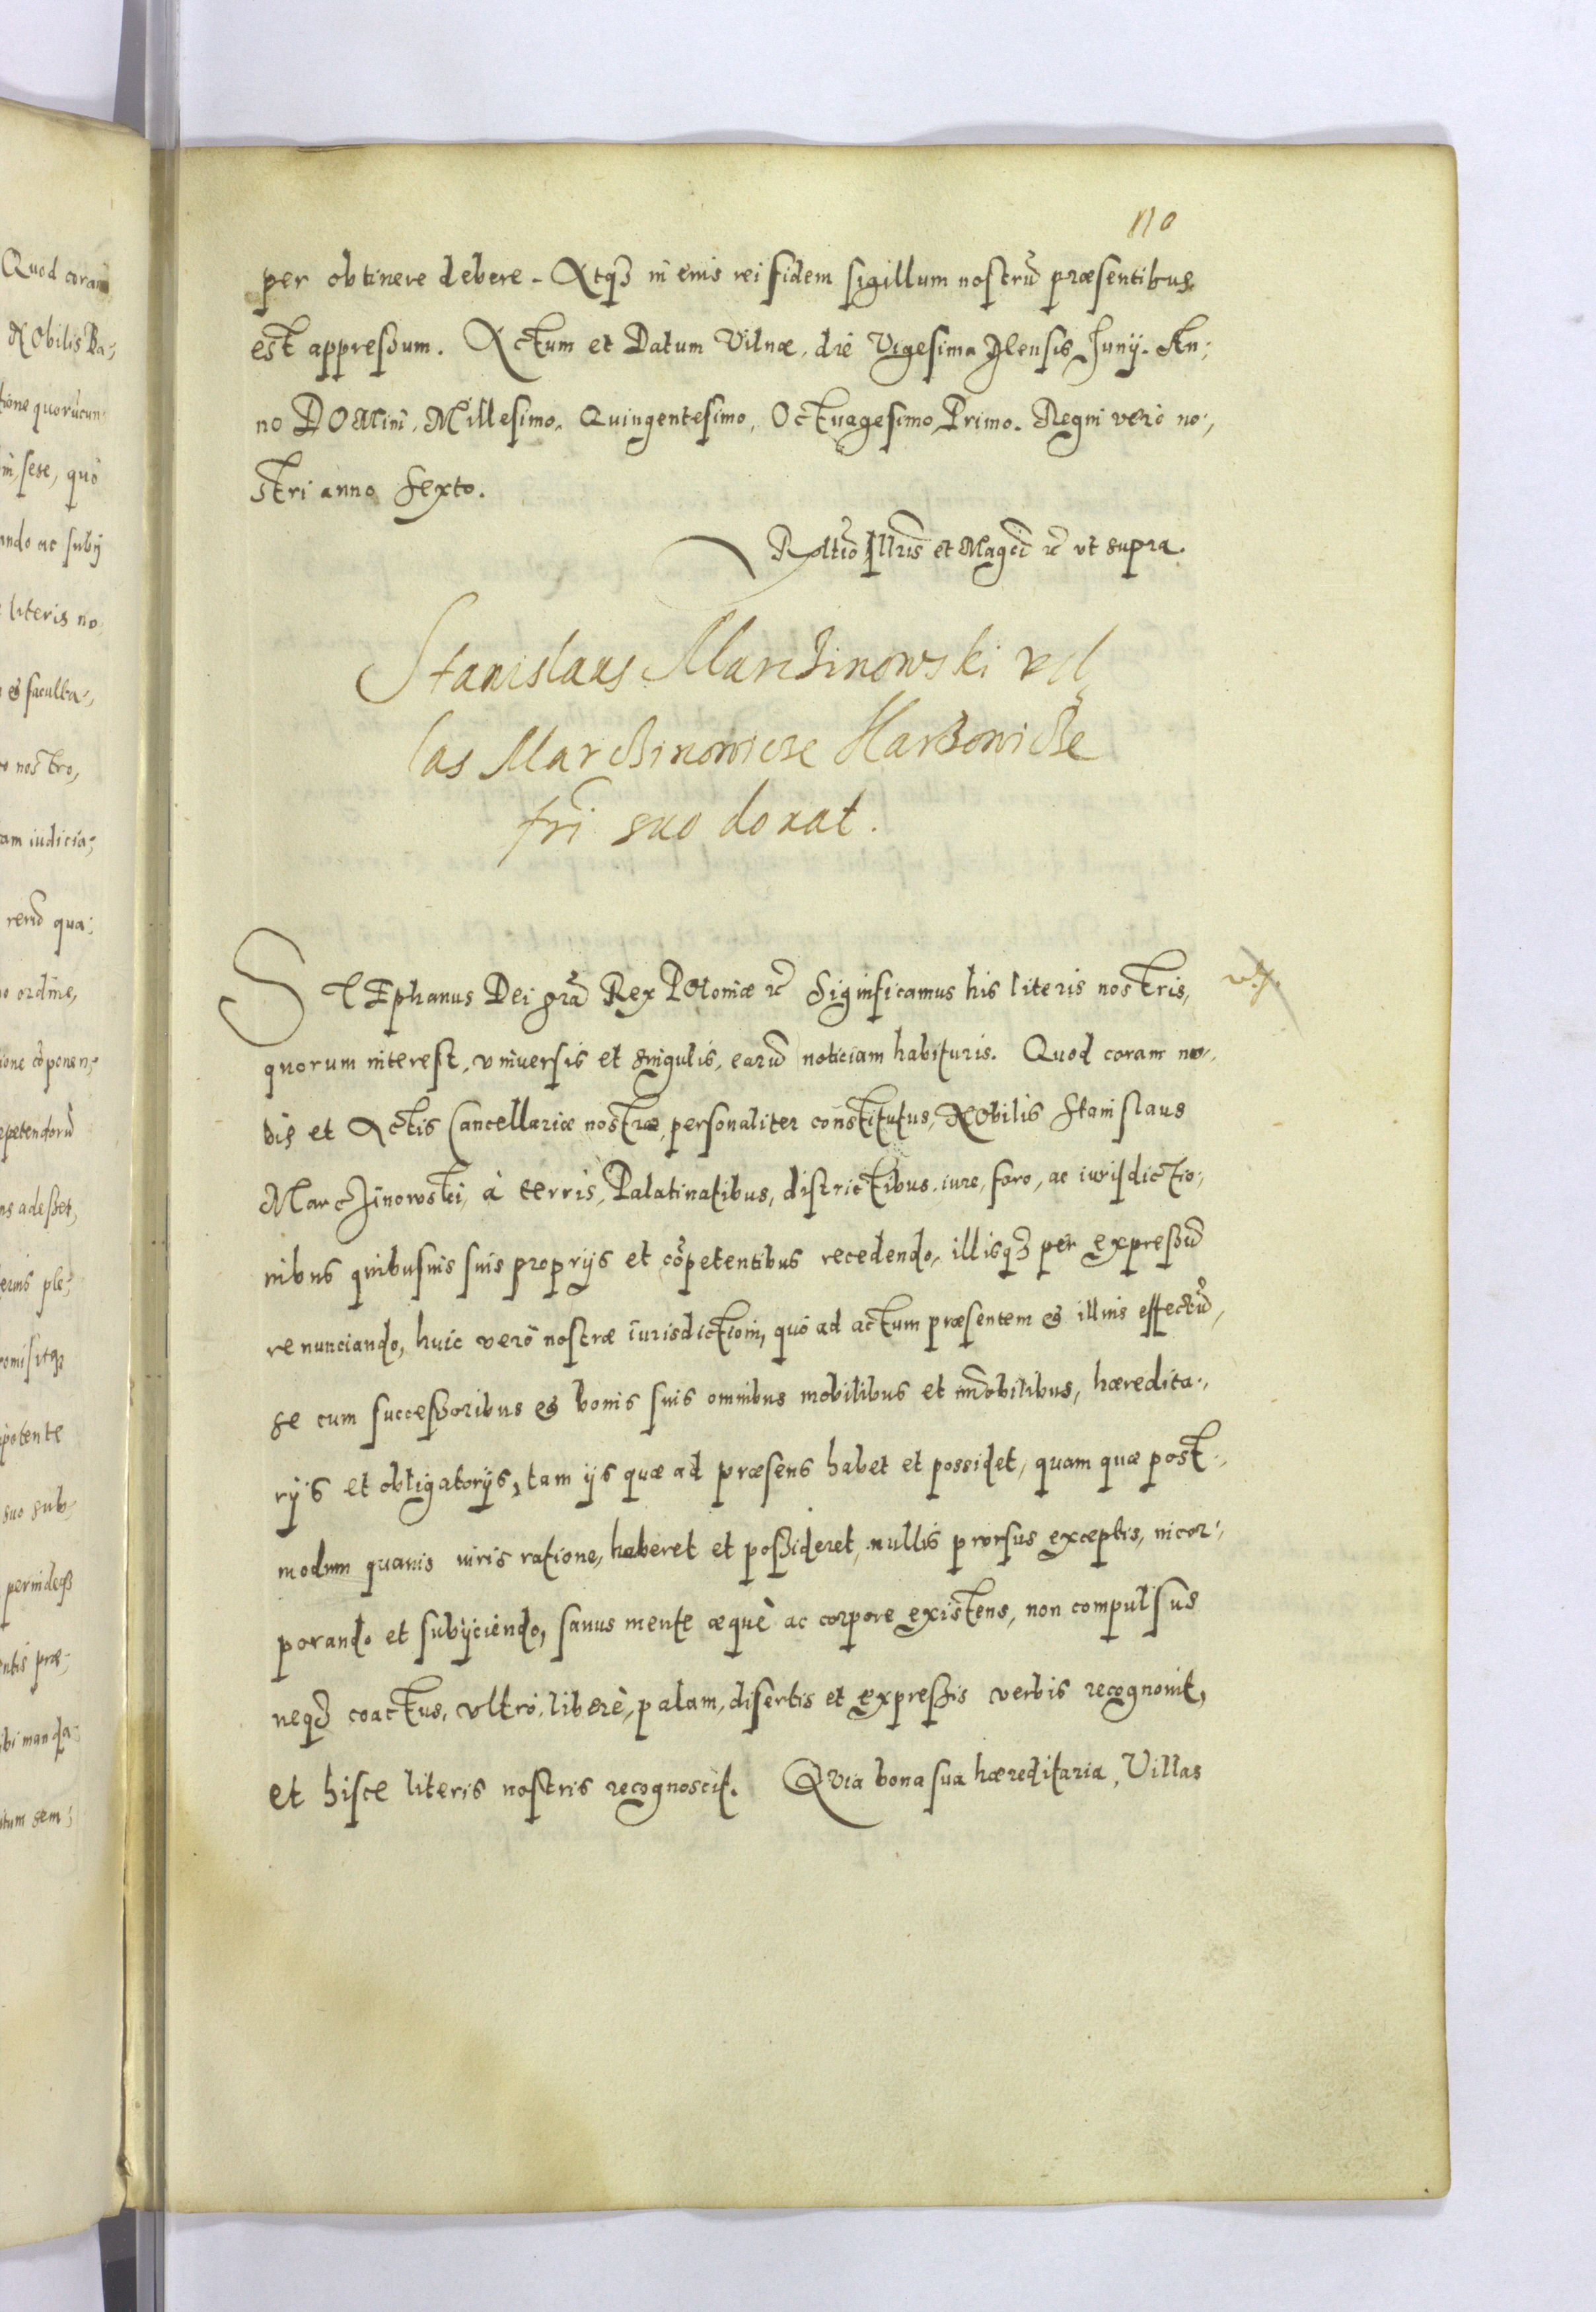 110
per obtinere debere. Atq3 in eius rei fidem sigillum nostrũ præsentibus
est appressum. Actum et Datum Vilnæ, die Vigesima Mensis Junÿ. An:
no DOMini, Millesimo, Quingentesimo, Octuagesimo, Primo. Regni verò no:
stri anno sexto.
Reltio Illris et Magci rc vt supra.
Stanislaus Marczinowski vil
las Marcźinowicze Harsowicze
fri suo donat.
STEphanus Dei grã Rex POloniæ rc Significamus his literis nostris,
quorum interest, vniuersis et singulis, earũ noticiam habituris. Quod coram no:
bis et Actis Cancellariæ nostræ, personaliter constitutus, NObilis Stanislaus
Marczinowski, à terris, Palatinatibus, districtibus, iure, foro, ac iurisdictio:
nibus quibusuis suis proprÿs et cõpetentibus recedendo, illisq3 per expressũ
renunciando, huic verò nostræ iurisdictioni, quò ad actum præsentem et illius effectũ,
se cum successoribus et bonis suis omnibus mobilibus et imobilibus, hæredita:
rÿs et obligatorÿs, tam ÿs quæ ad præsens habet et possidet, quam quæ post:
modum quauis iuris ratione, haberet et possideret, nullis prorsus exceptis, incor:
porando et subÿciendo, sanus mente æquè ac corpore existens, non compulsus
neq3 coactus, vltrò, liberè, palam, disertis et expressis verbis recognouit,
et hisce literis nostris recognoscit. QVia bona sua hæreditaria, Villas